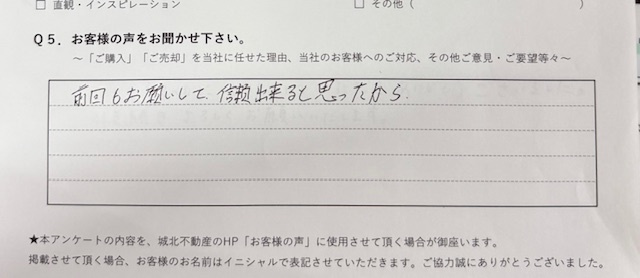 □ 直観・インスピレーション □ その他（ ）
Ｑ５．お客様の声をお聞かせ下さい。
～「ご購入」「ご売却」を当社に任せた理由、当社のお客様へのご対応、その他ご意見・ご要望等々～
前回もお願いして、信頼出来ると思ったから.
★本アンケートの内容を、城北不動産のHP「お客様の声」に使用させて頂く場合が御座います。
掲載させて頂く場合、お客様のお名前はイニシャルで表記させていただきます。ご協力誠にありがとうございました。